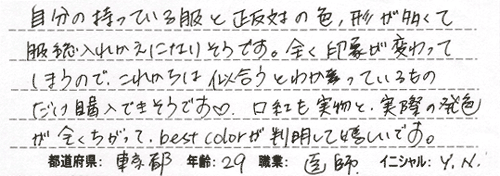 自分の持っている服と正反対の色,形が多くて
服総入れかえになりそうです。全く印象が変わって
しまうので、これからは似合うとわかっているもの
だけ購入できそうです♡. 口紅も実物と、実際の発色
が全くちがって、best colorが判明して嬉しいです。
都道府県: 東京都 年齢: 29 職業: 医師 イニシャル: Y.N.